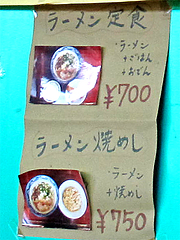 ラーメン定食
・ラーメン
+ごはん
+おでん
¥700
ラーメン焼めし
・ラーメン
+焼めし
¥750